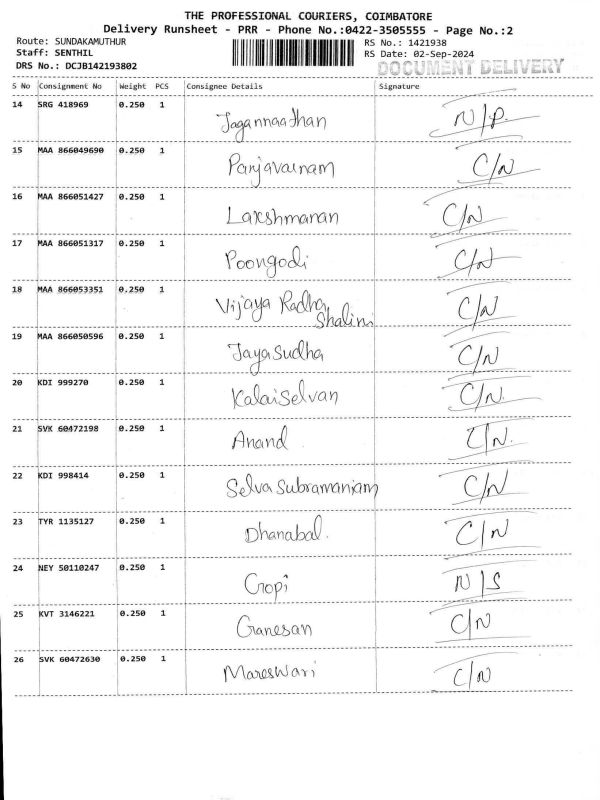 THE PROFESSIONAL COURIERS, COIMBATORE
Delivery Runsheet - PRR - Phone No.:0422-3505555 - Page No.:2
Route: SUNDAKAMUTHUR RS No.: 1421938
Staff: SENTHIL RS Date: 02-Sep-2024
DRS No.: DCJB142193802 DOCUMENT DELIVERY
S No Consignment No Weight PCS Consignee Details Signature
14 SRG 418969 0.250 1 Jagannaathan N/P.
15 MAA 866049690 0.250 1 Panjavarnam C/N
16 MAA 866051427 0.250 1 Lakshmanan C/N
17 MAA 866051317 0.250 1 Poongodi C/N
18 MAA 866053351 0.250 1 Vijaya Radha C/N
Shalini
19 MAA 866050596 0.250 1 JayaSudha C/N
20 KDI 999270 0.250 1 KalaiSelvan C/N.
21 SVK 60472198 0.250 1 Anand C/N.
22 KDI 998414 0.250 1 Selva Subramaniam C/N
23 TYR 1135127 0.250 1 Dhanabal. C/N
24 NEY 50110247 0.250 1 Gopi N/S
25 KVT 3146221 0.250 1 Ganesan C/N
26 SVK 60472630 0.250 1 Mareswari C/N